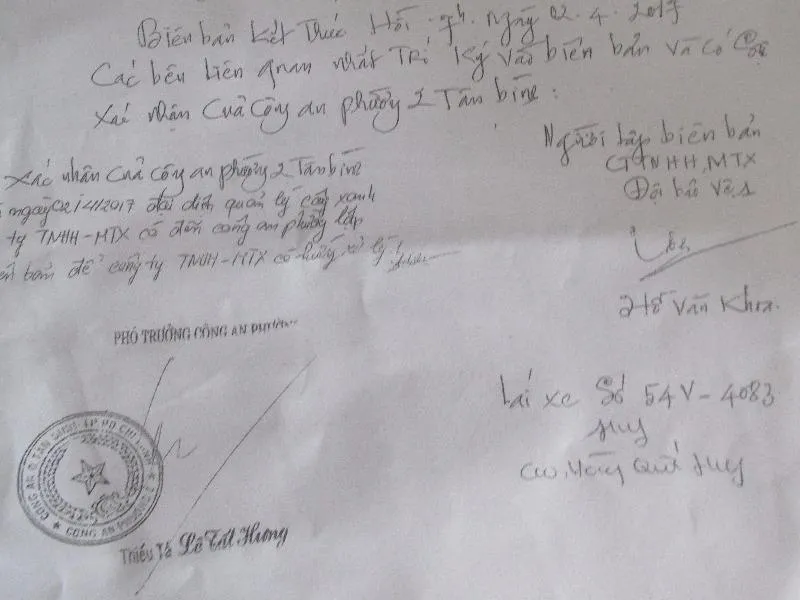 Biên bản kết thúc Hồi 9h. Ngày 02.4.2017
Các bên liên quan nhất Trí Ký vào biên bản và có
Xác nhận Của Công an phường 2 Tân bình:
Người lập biên bản
CTTNHH,MTX
Đội bảo Vệ,1
Xác nhân Của Công an phường 2 Tân bình
ngày 02/4/2017 đại diện quản lý cây xanh
ty TNHH-MTX có đến công an phường lập
bản để công ty TNHH-MTX có hướng xử lý
Hồ Văn Khoa.
PHÓ TRƯỞNG CÔNG AN PHƯỜNG
Lái xe Số 54V-4083
Huy
Quí Huy
CÔNG AN Q. TÂN BÌNH TP HỒ CHÍ MINH
CÔNG AN PHƯỜNG 2
Thiếu Tá Lê Tất Hương